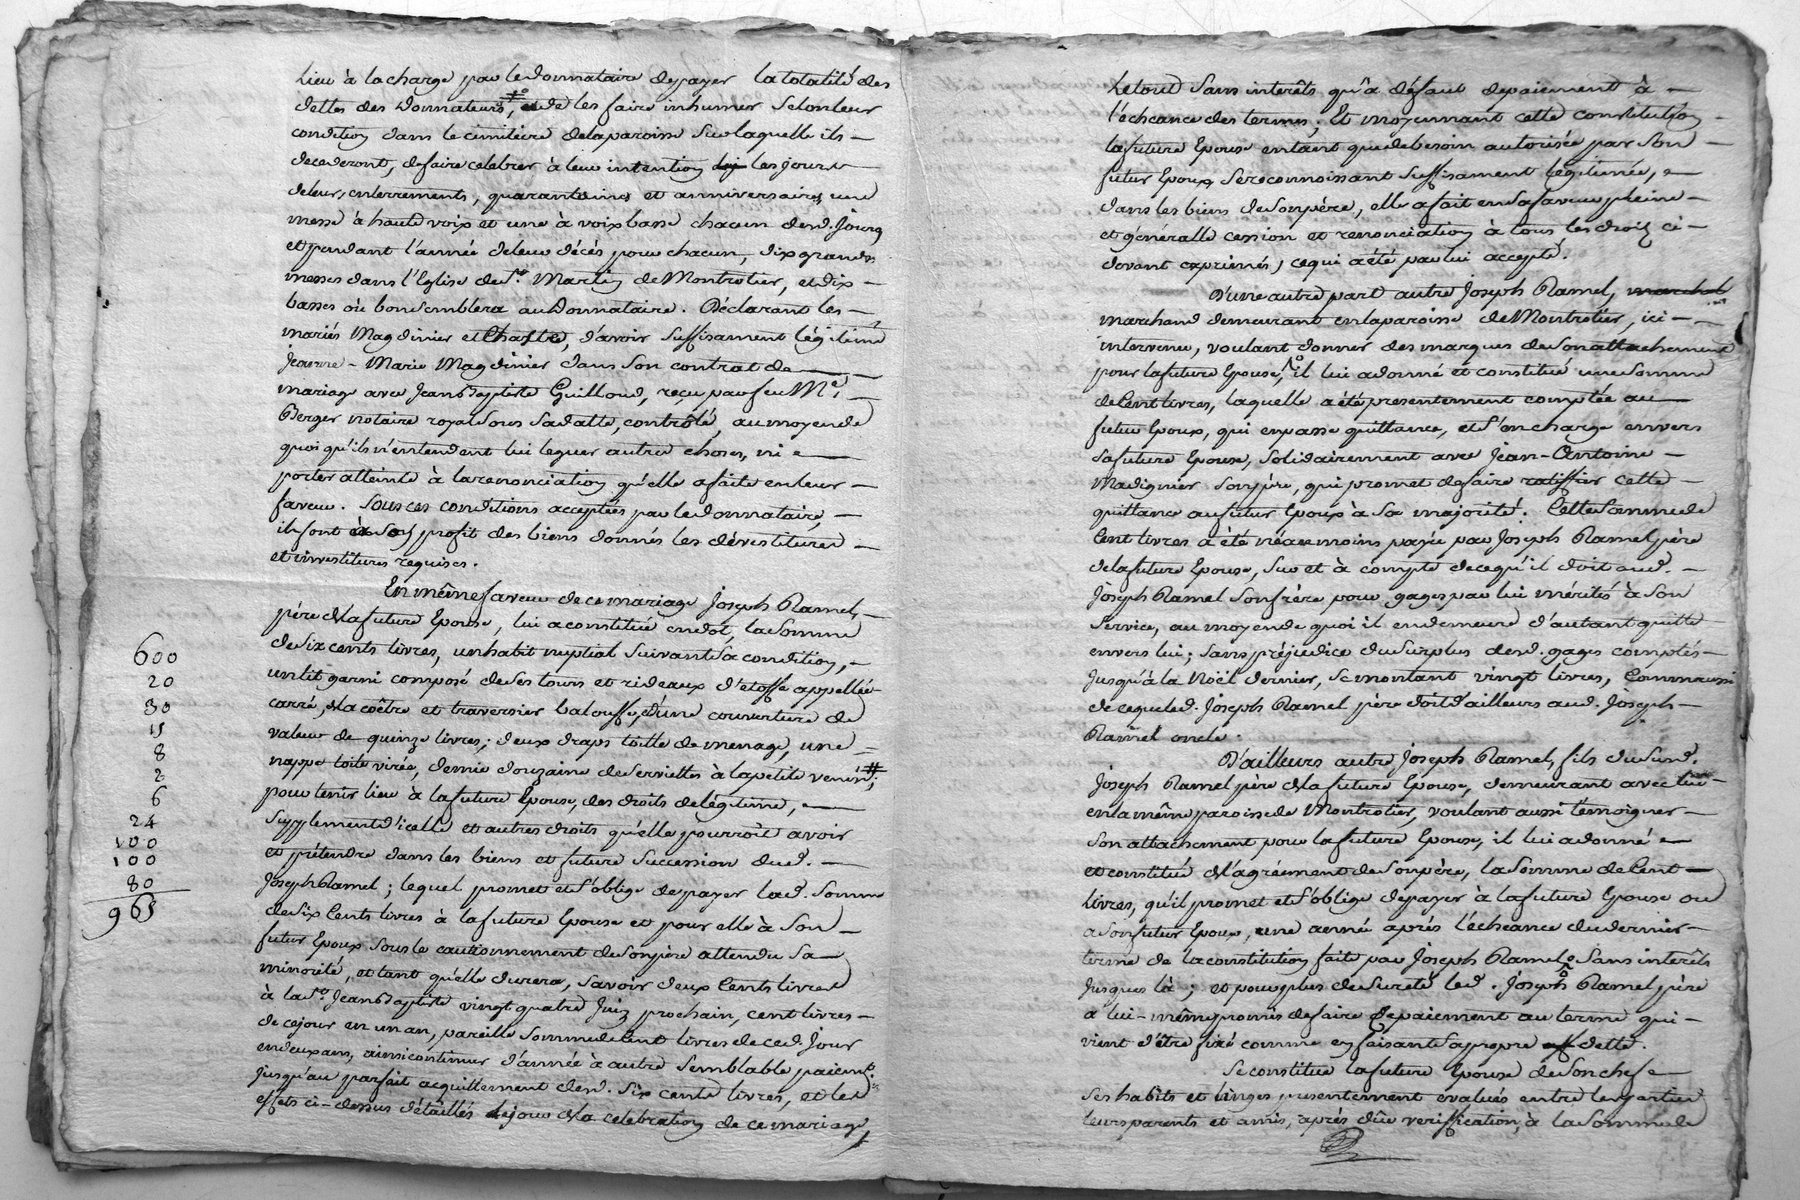 lieu à la charge par le donnataire de payer la totalité des
dettes des donnateurs, # et de les faire inhumer selon leur
condition dans le cimitière de la paroisse sur laquelle ils
décederont, de faire celebrer à leur intention les jours
de leurs enterrements, quarantaines et anniversaires une
messe à haute voix et une à voix basse chacun desd. jours
et pendant l'année de leur décés pour chacun, dix grandes
messes dans l'Eglise de St. Martin de Montrotier, et dix
basses où bon semblera au donnataire. Déclarant les
mariés Magdinier et Chastre, d'avoir suffisament légitimé
Jeanne-Marie Magdinier dans son contrat de
mariage avec Jean Baptiste Guilloud, reçu par feu Me.
Berger notaire royal sous sa datte, contrôlé, au moyen de
quoi qu'ils n'entendent lui leguer autre choses, ni
porter atteinte à la renonciation qu'elle a faite en leur
faveur. Sous ces conditions acceptées par le donnataire,
ils font à son profit des biens donnés les dévestitures
et investitures requises.
En même faveur de ce mariage Joseph Ramel,
père de la future Epouse, lui a constitué en dot, la somme
de six cents livres, un habit nuptial suivant sa condition,
un lit garni composé de ses tours et rideaux d'étoffe appellée
carré, de la coëtre et traversier balouffe, d'une couverture de
valeur de quinze livres; deux draps toille de menage, une
nappe toile virée, demie douzaine de serviettes à la petite venise #;
pour tenir lieu à la future Epouse, des droits de légitime,
supplement d'icelle et autres droits qu'elle pourroit avoir
et prétendre dans les biens et future succession dud.
Joseph Ramel; lequel promet et s'oblige de payer lad. somme
de six Cents livres à la future Epouse et pour elle à son
futur Epoux sous le cautionnement de son père attendu sa
minorité, et tant qu'elle durera, savoir deux Cents livres
à la St. Jean Baptiste vingt quatre Juin prochain, cent livres
de ce jour en un an, pareille somme de Cent livres de ced. jour
en deux ans, ainsi continuer d'année à autre semblable paiemt.
jusqu'au parfait acquittement desd. six cents livres, et les
effets ci-dessus détaillés le jour de la celebration de ce mariage,
600
20
30
15
8
2
6
24
100
100
80
965
le tout sans interêts qu'à défaut de paiement à
l'écheance des termes; Et moyennant cette constitution
la future Epouse entant que de besoin autorisée par son
futur Epoux se reconnoissant suffisament légitimée,
dans les biens de son père, elle a fait en sa faveur pleine
et généralle cession et renonciation à tous les droits ci-
devant exprimés, ce qui a été par lui accepté.
D'une autre part autre Joseph Ramel, marchal
marchand demeurant en la paroisse de Montrotier, ici
intervenu, voulant donner des marques de son attachement
pour la future Epouse, il lui a donné et constitué une somme
de Cent livres, laquelle a été presentement comptée au
futur Epoux, qui en passe quittance, et s'en charge envers
sa future Epouse, solidairement avec Jean-Antoine
Madignier son père, qui promet de faire ratiffier cette
quittance au futur Epoux à sa majorité. Cette somme de
Cent livres a été néanmoins payée par Joseph Ramel père
de la future Epouse, sur et à compte de ce qu'il doit aud.
Joseph Ramel son frère pour gages par lui mérités à son
service, au moyen de quoi il en demeure d'autant quitte
envers lui; sans préjudice du surplus desd. gages comptés
jusqu'à la Noël dernier, se montant vingt livres, Comme aussi
de ce que led. Joseph Ramel père doit d'ailleurs aud. Joseph
Ramel oncle.
D'ailleurs autre Joseph Ramel, fils du surd.
Joseph Ramel père de la future Epouse, demeurant avec lui
en la même paroisse de Montrotier, voulant aussi témoigner
son attachement pour la future Epouse, il lui a donné
et constitué de l'agrément de son père, la somme de Cent
livres, qu'il promet et s'oblige de payer à la future Epouse ou
a son futur Epoux, une année après l'écheance du dernier
terme de la constitution faite par Joseph Ramel, sans interêts
jusques là; et pour plus de sureté led. Joseph Ramel père
a lui-même promis de faire ce paiement au terme qui
vient d'être fixé comme en faisant sa propre dette.
Se constitue la future Epouse de son chef
ses habits et linges presentement évalués entre les parties
leurs parents et amis, après düe veriffication, à la somme de